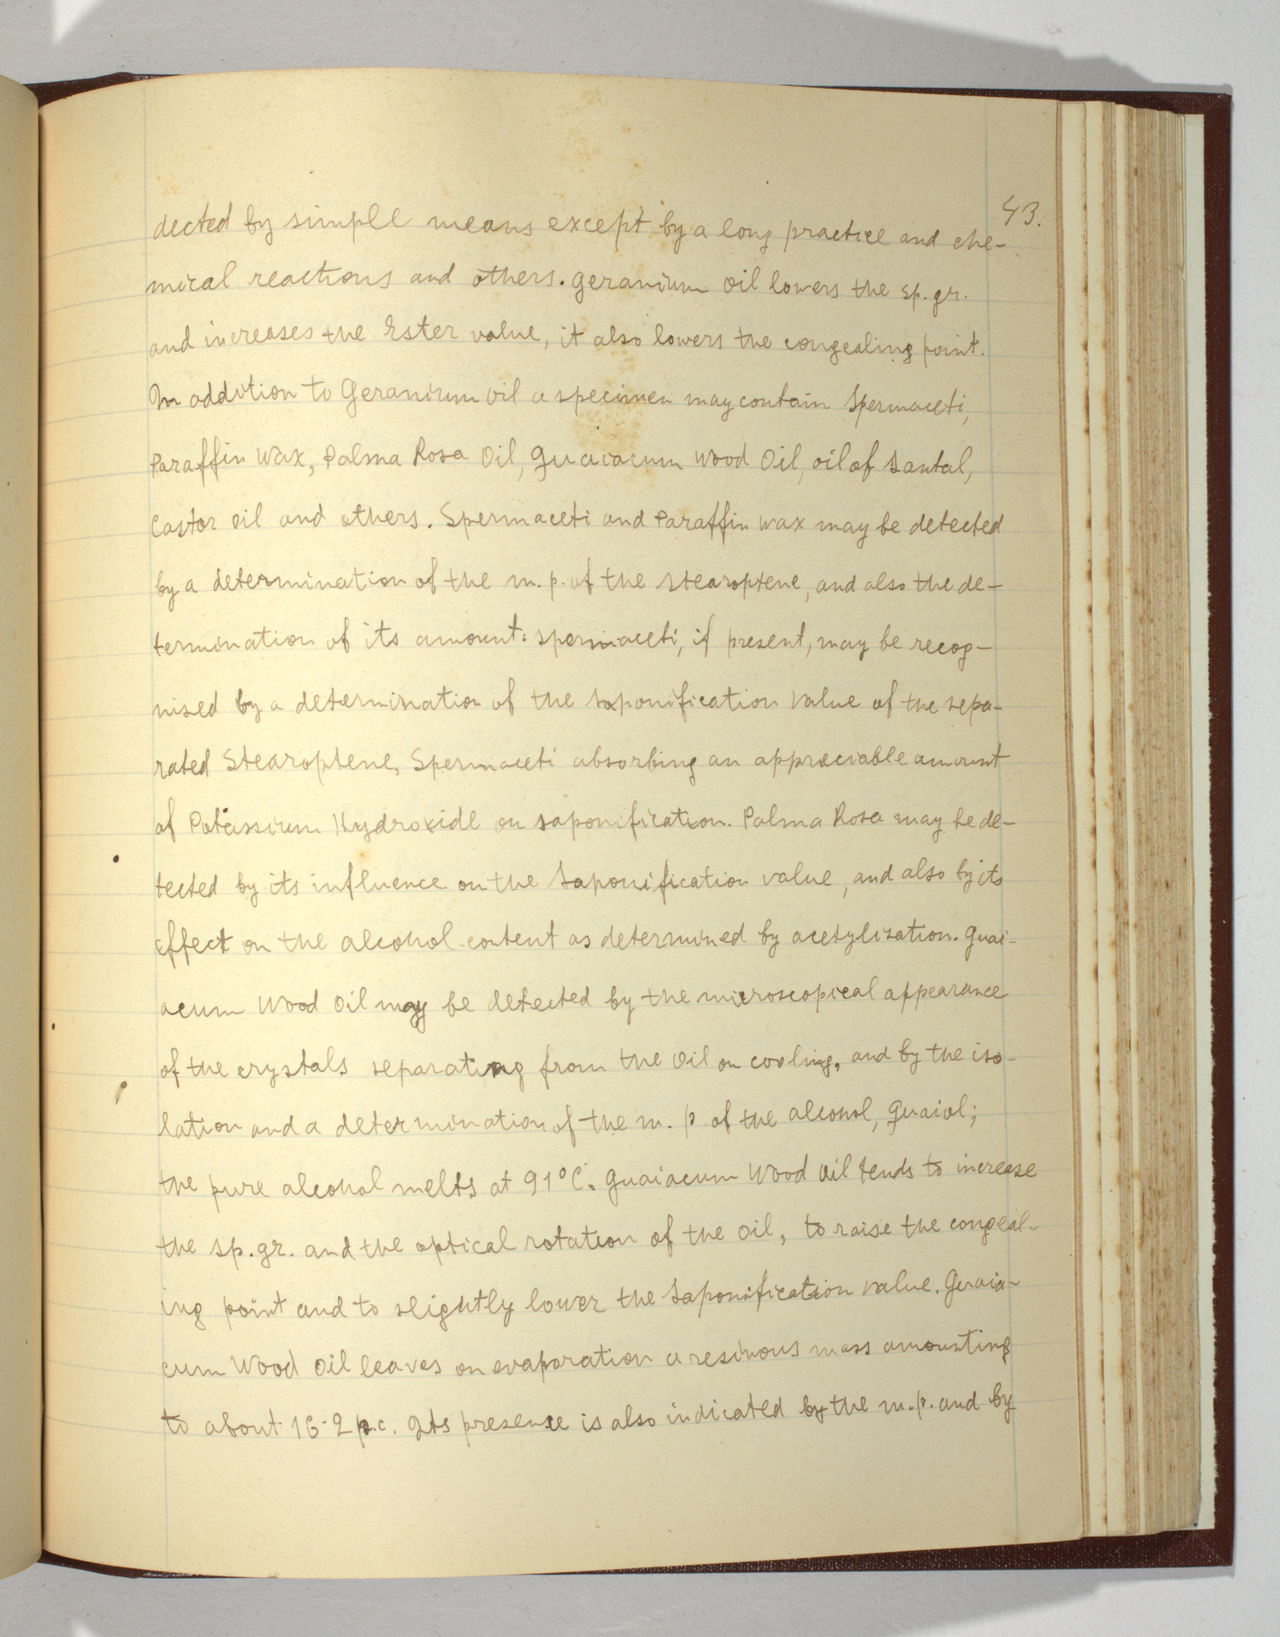 43.
dected by simple means except by a long practice and che-
mical reactions and others. Geranium Oil lowers the sp. gr.
and increases the Ester value, it also lowers the congealing point.
In addition to Geranium Oil a specimen may contain Spermaceti,
Paraffin Wax, Palma Rosa Oil, Guaiacum Wood Oil, oil of Santal,
Castor Oil and others. Spermaceti and Paraffin wax may be detected
by a determination of the m. p. of the stearoptene, and also the de-
termination of its amount: spermaceti, if present, may be recog-
nised by a determination of the saponification value of the sepa-
rated Stearoptene, Spermaceti absorbing an appreciable amount
of Potassium Hydroxide on saponification. Palma Rosa may be de-
tected by its influence on the Saponification value, and also by its
effect on the alcohol content as determined by acetylization. Guai-
acum Wood Oil may be detected by the microscopical appearance
of the crystals separating from the Oil on cooling, and by the iso-
lation and a determination of the m. p. of the alcohol, Guaiol;
the pure alcohol melts at 91°C. Guaiacum Wood Oil tends to increase
the sp. gr. and the optical rotation of the Oil, to raise the congeal-
ing point and to slightly lower the Saponification value. Guaia-
cum Wood Oil leaves on evaporation a resinous mass amounting
to about 2 p.c. Its presence is also indicated by the m. p. and by